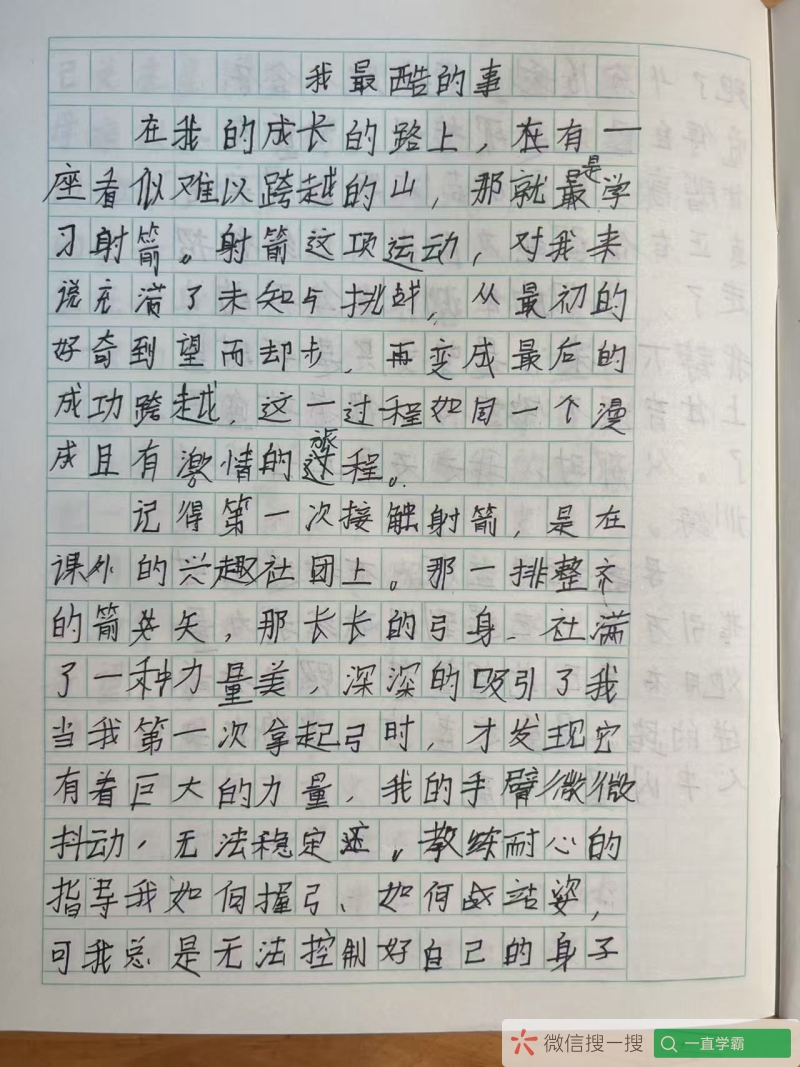 我最酷的事
在我的成长的路上，在有一
座看似难以跨越的山，那就是学
习射箭。射箭这项运动，对我来
说充满了未知与挑战，从最初的
好奇到望而却步，再变成最后的
成功跨越，这一过程如同一个漫
成且有激情的旅程。
记得第一次接触射箭，是在
课外的兴趣社团上。那一排整齐
的箭矢，那长长的弓身，社满
了一种力量美，深深的吸引了我
当我第一次拿起弓时，才发现它
有着巨大的力量，我的手臂微微
抖动，无法稳定。教练耐心的
指导我如何握弓、如何站姿，
可我总是无法控制好自己的身子
微信搜一搜
一直学霸